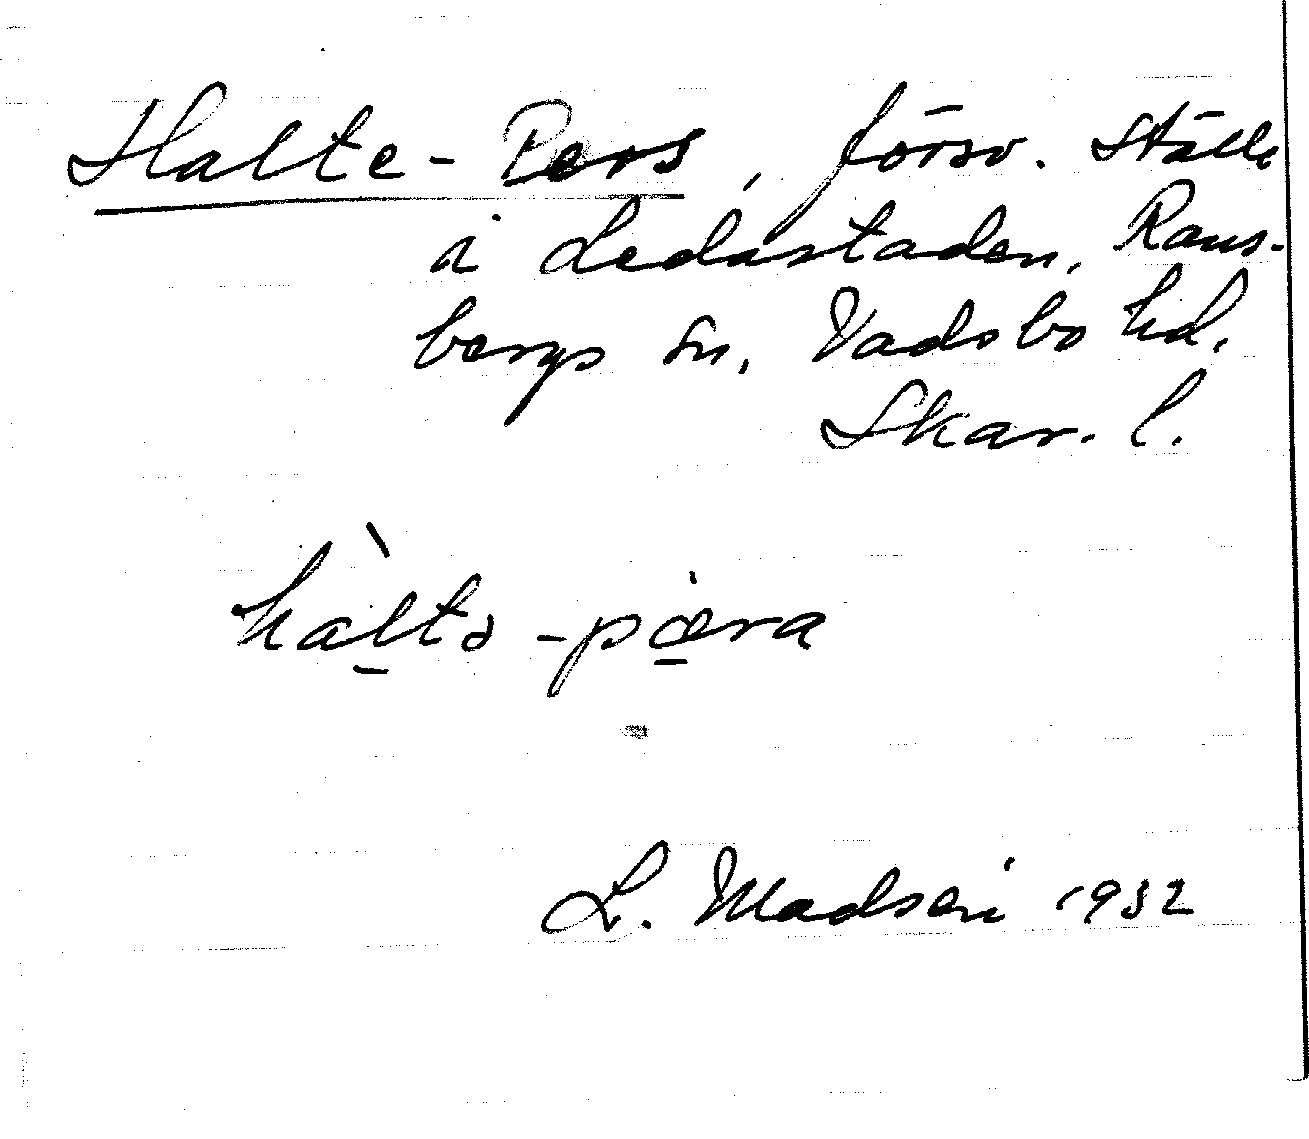 Halte-Pers, försv. ställe
i Ledåstaden, Rans-
bergs sn. Vadsbo hd.
Skar. l.
hàltə-pæra
L. Madsén 1932